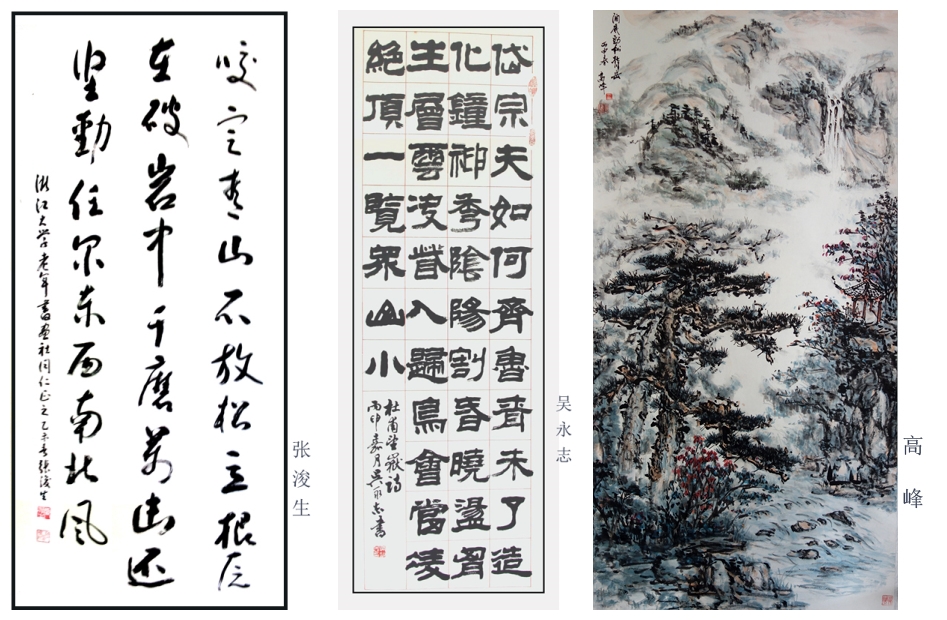 咬定青山不放松立根原
在破岩中千磨萬击还
坚劲任尔东西南北风
浙江大学老年書画社同仁正之乙未春张浚生
张浚生
岱宗夫如何齊魯青未了造
化鐘神秀陰陽割昏曉盪胷
生層雲决眥入歸鳥會當凌
絕頂一覽眾山小
杜甫望嶽詩
丙申嘉月吴永志書
吴永志
丙申春 高峰
高峰